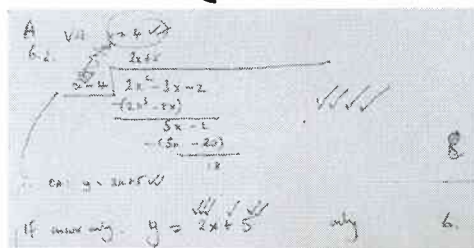 A VA x = 4 ✓✓
6.2. 2x + 5
x - 4 2x² - 3x - 2
-(2x² - 8x)
5x - 2
-(5x - 20)
18
✓✓✓✓
8
∴ OA: y = 2x + 5 ✓✓
If answer only. y = 2x + 5 only 6.